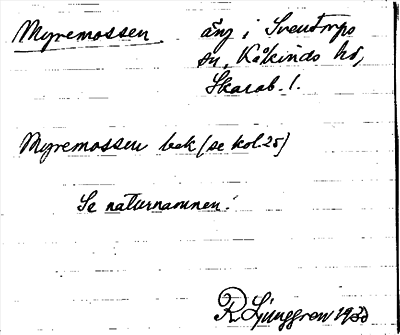 Myremossen äng i Sventorps
sn, Kåkinds hd,
Skarab. l.
Myremossen bek (se kol. 25)
Se naturnamnen!
R Ljunggren 1933